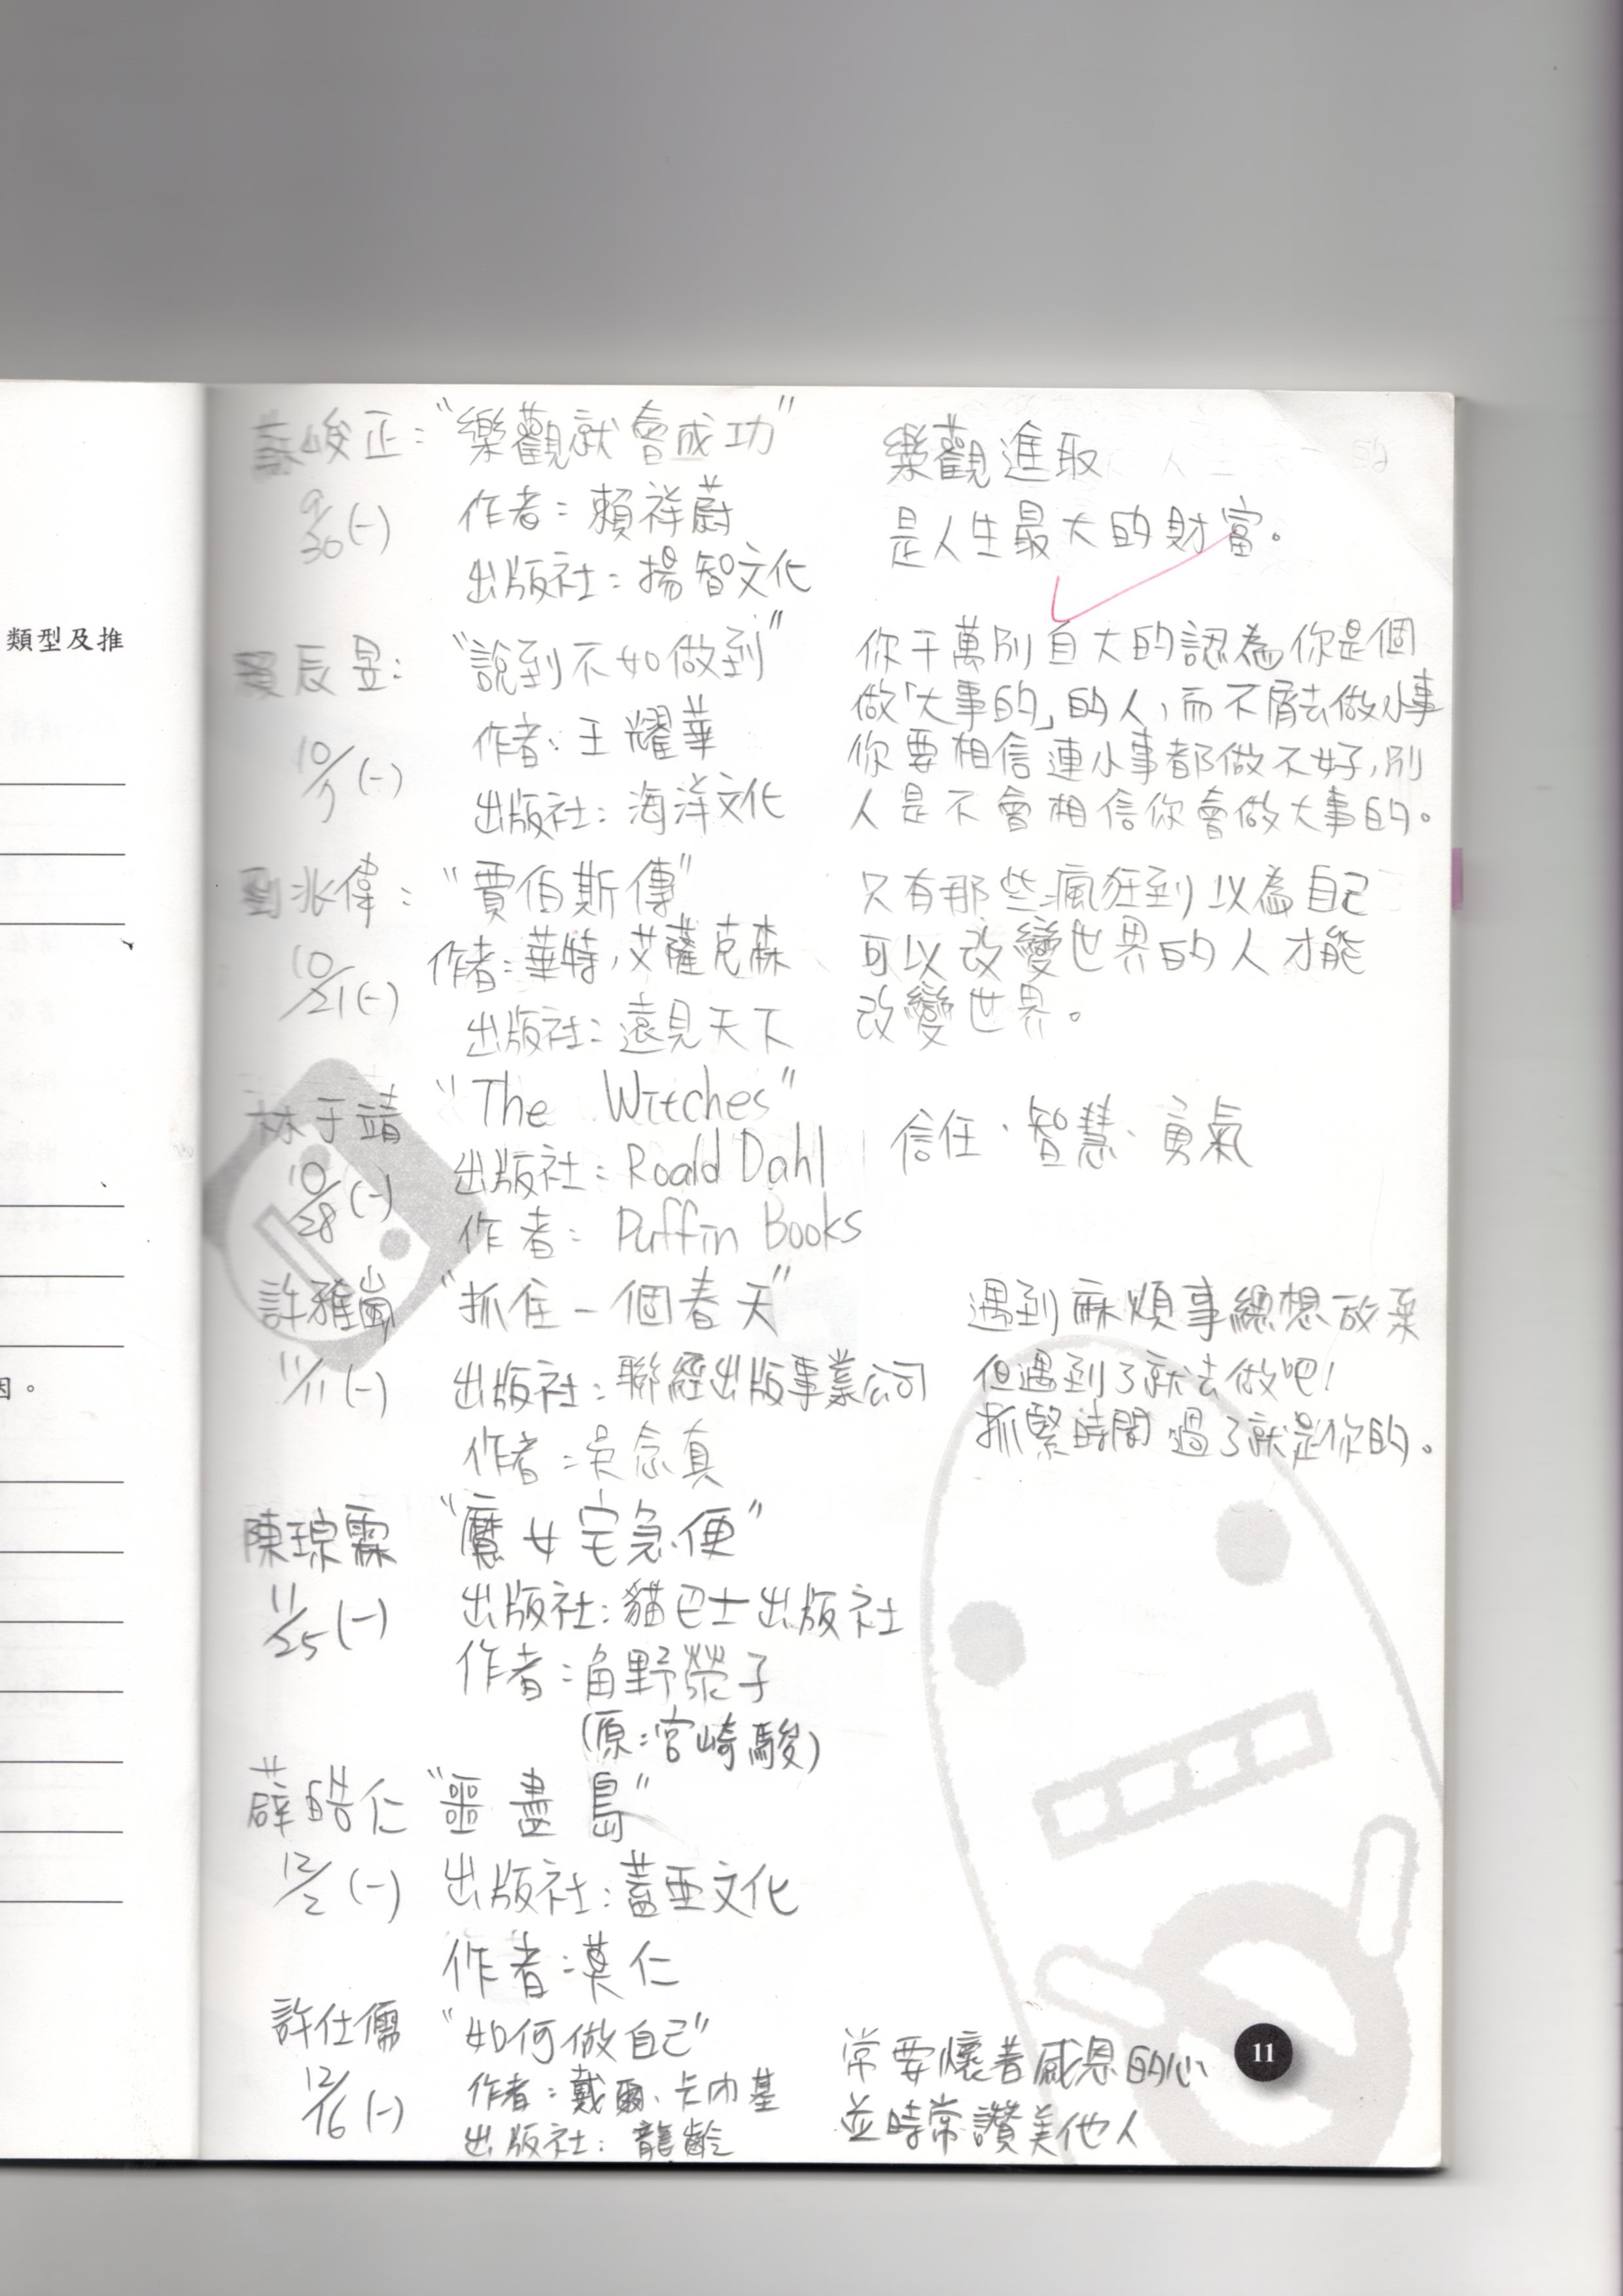 類型及推
因。
蔡峻正：“樂觀就會成功”
9/30(一)
作者：賴祥蔚
出版社：揚智文化
樂觀進取
是人生最大的財富。
賴辰昱：“說到不如做到”
10/7(一)
作者：王耀華
出版社：海洋文化
你千萬別自大的認為你是個
做「大事的」的人，而不屑去做小事
你要相信連小事都做不好，別
人是不會相信你會做大事的。
劉兆偉：“賈伯斯傳”
10/21(一)
作者：華特，艾薩克森
出版社：遠見天下
只有那些瘋狂到以為自己
可以改變世界的人才能
改變世界。
林于靖 “The Witches”
10/28(一)
出版社：Roald Dahl
作者：Puffin Books
信任、智慧、勇氣
許雅嵐 “抓住一個春天”
11/11(一)
出版社：聯經出版事業公司
作者：吳念真
遇到麻煩事總想放棄
但遇到了就去做吧！
抓緊時間過了就是你的。
陳琮霖 “魔女宅急便”
11/25(一)
出版社：貓巴士出版社
作者：角野榮子
(原：宮崎駿)
薛皓仁 “噩盡島”
12/2(一)
出版社：蓋亞文化
作者：莫仁
許仕儒 “如何做自己”
12/16(一)
作者：戴爾、卡內基
出版社：龍齡
常要懷著感恩的心
並時常讚美他人
11